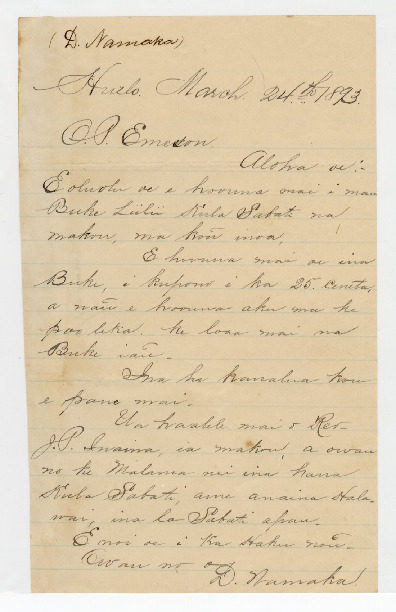 (D. Namaka)
Huelo. March. 24.th 1893.
O. P. Emeson.
Aloha oe:-
E oluolu oe e hoouna mai i mau
Buke Liilii Kula Sabati na
makou, ma koŭ inoa,
E hoouna mai oe ina
Buke, i kupono i ka 25. ceneta,
a naŭ e hoouna aku ma ke
poo leka, ke loaa mai na
Buke iaŭ.
Ina he kanalua kou
e pane mai.
Ua haalele mai o Rev.
J. P. Inaina, ia makou, a owau
no ke Malama nei ina hana
Kula Sabati, ame anaina Hala-
wai, ina la Sabati apau.
E noi oe i ka Haku noŭ.
Owau no
D. Namaka